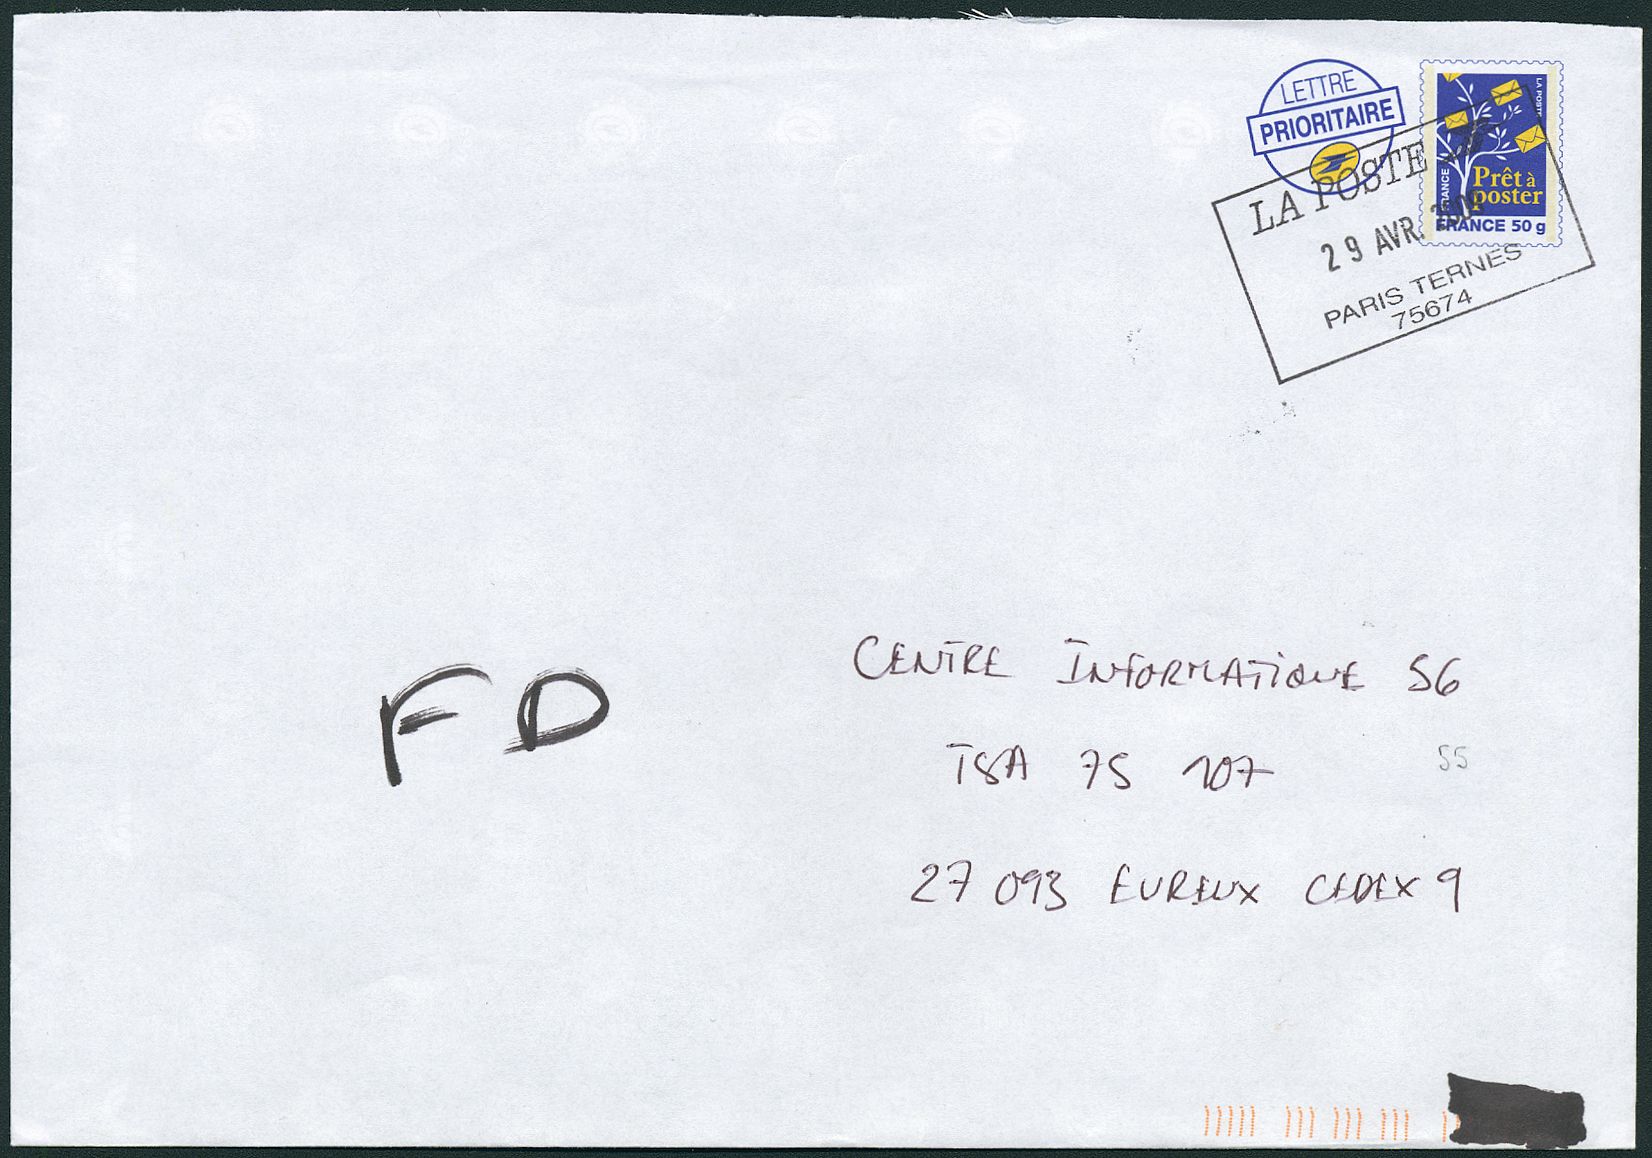 LETTRE
PRIORITAIRE
LA POSTE
Prêt à
poster
FRANCE
FRANCE 50 g
LA POSTE
29 AVR.
PARIS TERNES
75674
CENTRE INFORMATIQUE 56
TSA 75 107
55
27 093 EUREUX CEDEX 9
FD